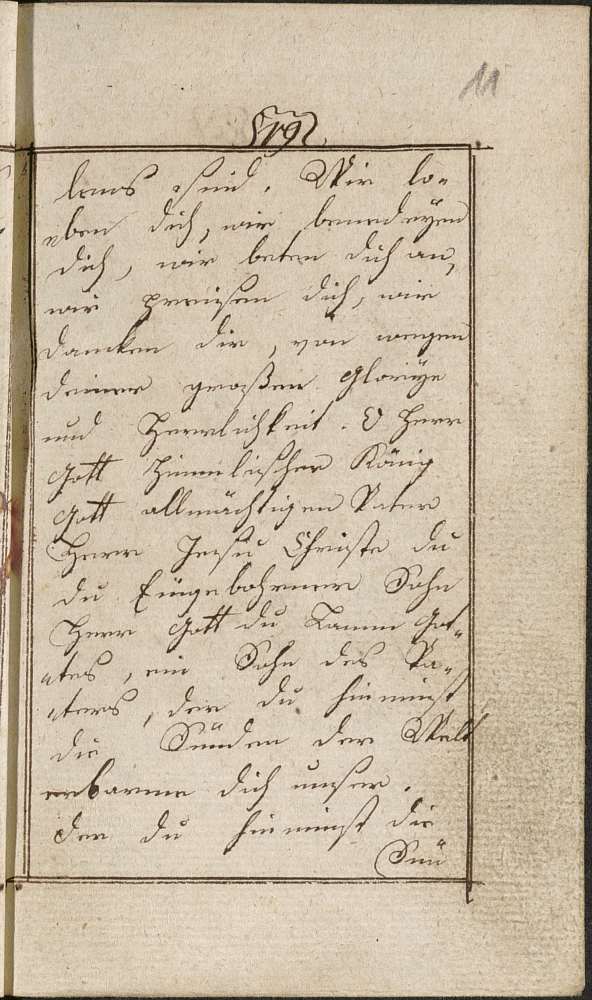 11
19
lens sind. Wir lo=
=ben dich, wir benedeyen
dich, wir beten dich an,
wir preisen dich, wir
dancken dir, von wegen
deiner großen Gloriye
und Herrlichkeit. O Herr
Gott Himmlischer König
Gott allmächtigen Vater
Herr Jesu Christe du
du Eingebohrner Sohn
Herr Gott du Lamm Got=
=tes, ein Sohn des Va=
=ters, der du hinnimst
die Sünden der Welt
erbarme dich unser.
der du hinnimst die
Sün